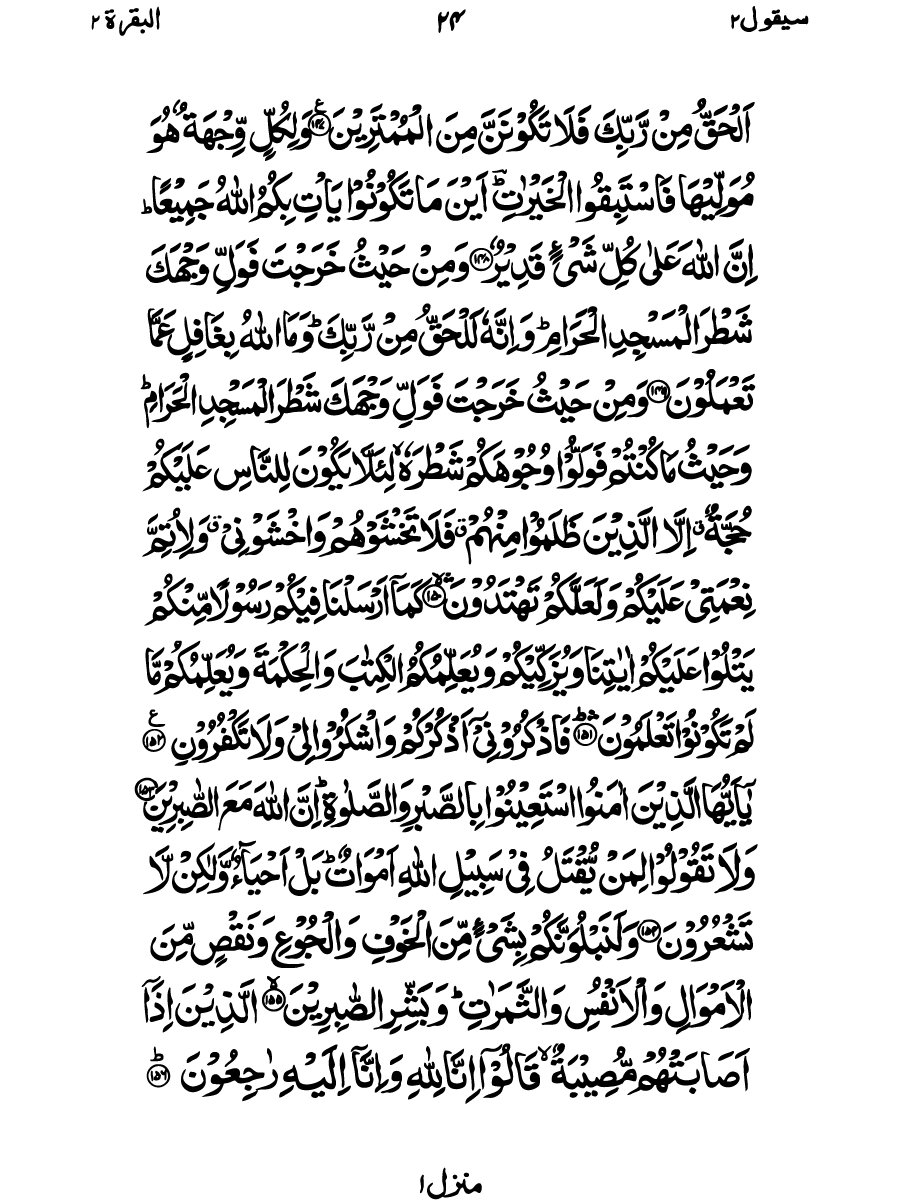 سيقول٢ ٢٤ البقرة ٢
اَلۡحَقُّ مِنۡ رَّبِّكَ فَلَا تَكُوۡنَنَّ مِنَ الۡمُمۡتَرِيۡنَ ﴿۱۴۷﴾ ع وَلِكُلٍّ وِّجۡهَةٌ هُوَ
مُوَلِّيۡهَا فَاسۡتَبِقُوا الۡخَيۡرٰتِؔ اَيۡنَ مَا تَكُوۡنُوۡا يَاۡتِ بِكُمُ اللّٰهُ جَمِيۡعًا ؕ
اِنَّ اللّٰهَ عَلٰى كُلِّ شَىۡءٍ قَدِيۡرٌ ﴿۱۴۸﴾ وَمِنۡ حَيۡثُ خَرَجۡتَ فَوَلِّ وَجۡهَكَ
شَطۡرَ الۡمَسۡجِدِ الۡحَرَامِ ؕ وَاِنَّهٗ لَلۡحَقُّ مِنۡ رَّبِّكَ ؕ وَمَا اللّٰهُ بِغَافِلٍ عَمَّا
تَعۡمَلُوۡنَ ﴿۱۴۹﴾ وَمِنۡ حَيۡثُ خَرَجۡتَ فَوَلِّ وَجۡهَكَ شَطۡرَ الۡمَسۡجِدِ الۡحَرَامِ ؕ
وَحَيۡثُ مَا كُنۡتُمۡ فَوَلُّوۡا وُجُوۡهَكُمۡ شَطۡرَهٗ ۙ لِئَلَّا يَكُوۡنَ لِلنَّاسِ عَلَيۡكُمۡ
حُجَّةٌ ۙ اِلَّا الَّذِيۡنَ ظَلَمُوۡا مِنۡهُمۡ فَلَا تَخۡشَوۡهُمۡ وَاخۡشَوۡنِىۡ وَلِاُتِمَّ
نِعۡمَتِىۡ عَلَيۡكُمۡ وَلَعَلَّكُمۡ تَهۡتَدُوۡنَ ﴿۱۵۰﴾ۙ كَمَآ اَرۡسَلۡنَا فِيۡكُمۡ رَسُوۡلًا مِّنۡكُمۡ
يَتۡلُوۡا عَلَيۡكُمۡ اٰيٰتِنَا وَيُزَكِّيۡكُمۡ وَيُعَلِّمُكُمُ الۡكِتٰبَ وَالۡحِكۡمَةَ وَيُعَلِّمُكُمۡ مَّا
لَمۡ تَكُوۡنُوۡا تَعۡلَمُوۡنَ ﴿۱۵۱﴾ؕ فَاذۡكُرُوۡنِىۡٓ اَذۡكُرۡكُمۡ وَاشۡكُرُوۡا لِىۡ وَلَا تَكۡفُرُوۡنِ ﴿۱۵۲﴾ ع
يٰٓاَيُّهَا الَّذِيۡنَ اٰمَنُوا اسۡتَعِيۡنُوۡا بِالصَّبۡرِ وَالصَّلٰوةِ ؕ اِنَّ اللّٰهَ مَعَ الصّٰبِرِيۡنَ ﴿۱۵۳﴾
وَلَا تَقُوۡلُوۡا لِمَنۡ يُّقۡتَلُ فِىۡ سَبِيۡلِ اللّٰهِ اَمۡوَاتٌ ؕ بَلۡ اَحۡيَآءٌ وَّلٰكِنۡ لَّا
تَشۡعُرُوۡنَ ﴿۱۵۴﴾ وَلَنَبۡلُوَنَّكُمۡ بِشَىۡءٍ مِّنَ الۡخَوۡفِ وَالۡجُوۡعِ وَنَقۡصٍ مِّنَ
الۡاَمۡوَالِ وَالۡاَنۡفُسِ وَالثَّمَرٰتِ ؕ وَبَشِّرِ الصّٰبِرِيۡنَ ﴿۱۵۵﴾ۙ الَّذِيۡنَ اِذَآ
اَصَابَتۡهُمۡ مُّصِيۡبَةٌ ۙ قَالُوۡٓا اِنَّا لِلّٰهِ وَاِنَّآ اِلَيۡهِ رٰجِعُوۡنَ ﴿۱۵۶﴾ؕ
منزل١